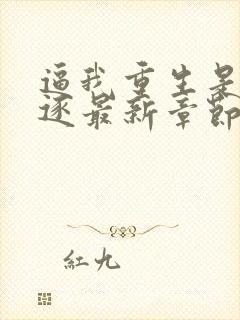 逼我重生是
逐最新章節
紅九